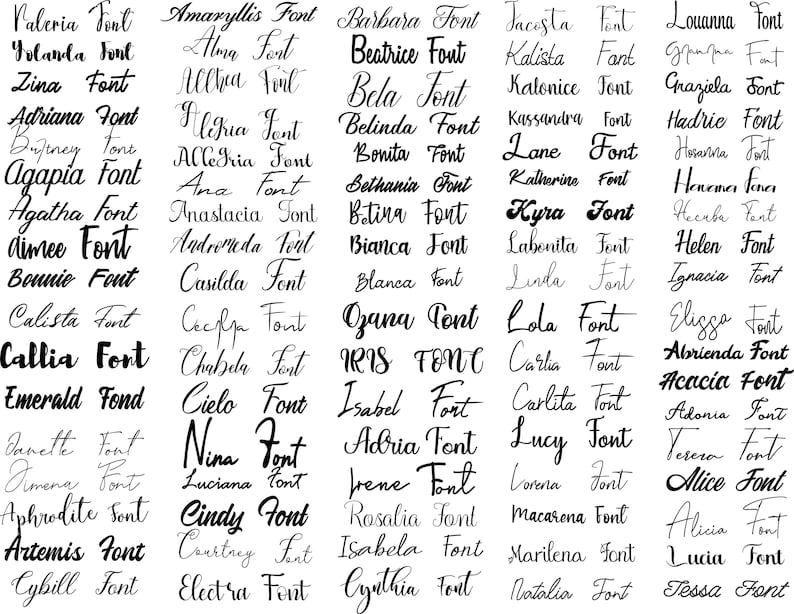 Valeria Font
Yolanda Font
Zina Font
Adriana Font
Britney Font
Agapia Font
Agatha Font
Aimee Font
Bonnie Font
Calista Font
Callia Font
Emerald Fond
Janette Font
Jimena Font
Aphrodite Font
Artemis Font
Cybill Font
Amaryllis Font
Alma Font
Allthea Font
Alegria Font
Allegria Font
Ana Font
Anastacia Font
Andromeda Font
Casilda Font
Cecilya Font
Chabela Font
Cielo Font
Nina Font
Luciana Font
Cindy Font
Courtney Font
Electra Font
Barbara Font
Beatrice Font
Bela Font
Belinda Font
Bonita Font
Bethania Font
Betina Font
Bianca Font
Blanca Font
Ozana Font
IRIS FONT
Isabel Font
Adria Font
Irene Font
Rosalia Font
Isabela Font
Cynthia Font
Jacosta Font
Kalista Font
Kalonice Font
Kassandra Font
Lane Font
Katherine Font
Kyra Font
Labonita Font
Linda Font
Lola Font
Carlia Font
Carlita Font
Lucy Font
Lorena Font
Macarena Font
Marilena Font
Natalia Font
Louanna Font
Font
Graziela Font
Hadrie Font
Hosanna Font
Havana Font
Hecuba Font
Helen Font
Ignacia Font
Elissa Font
Abrienda Font
Acacia Font
Adonia Font
Tereza Font
Alice Font
Alicia Font
Lucia Font
Tessa Font